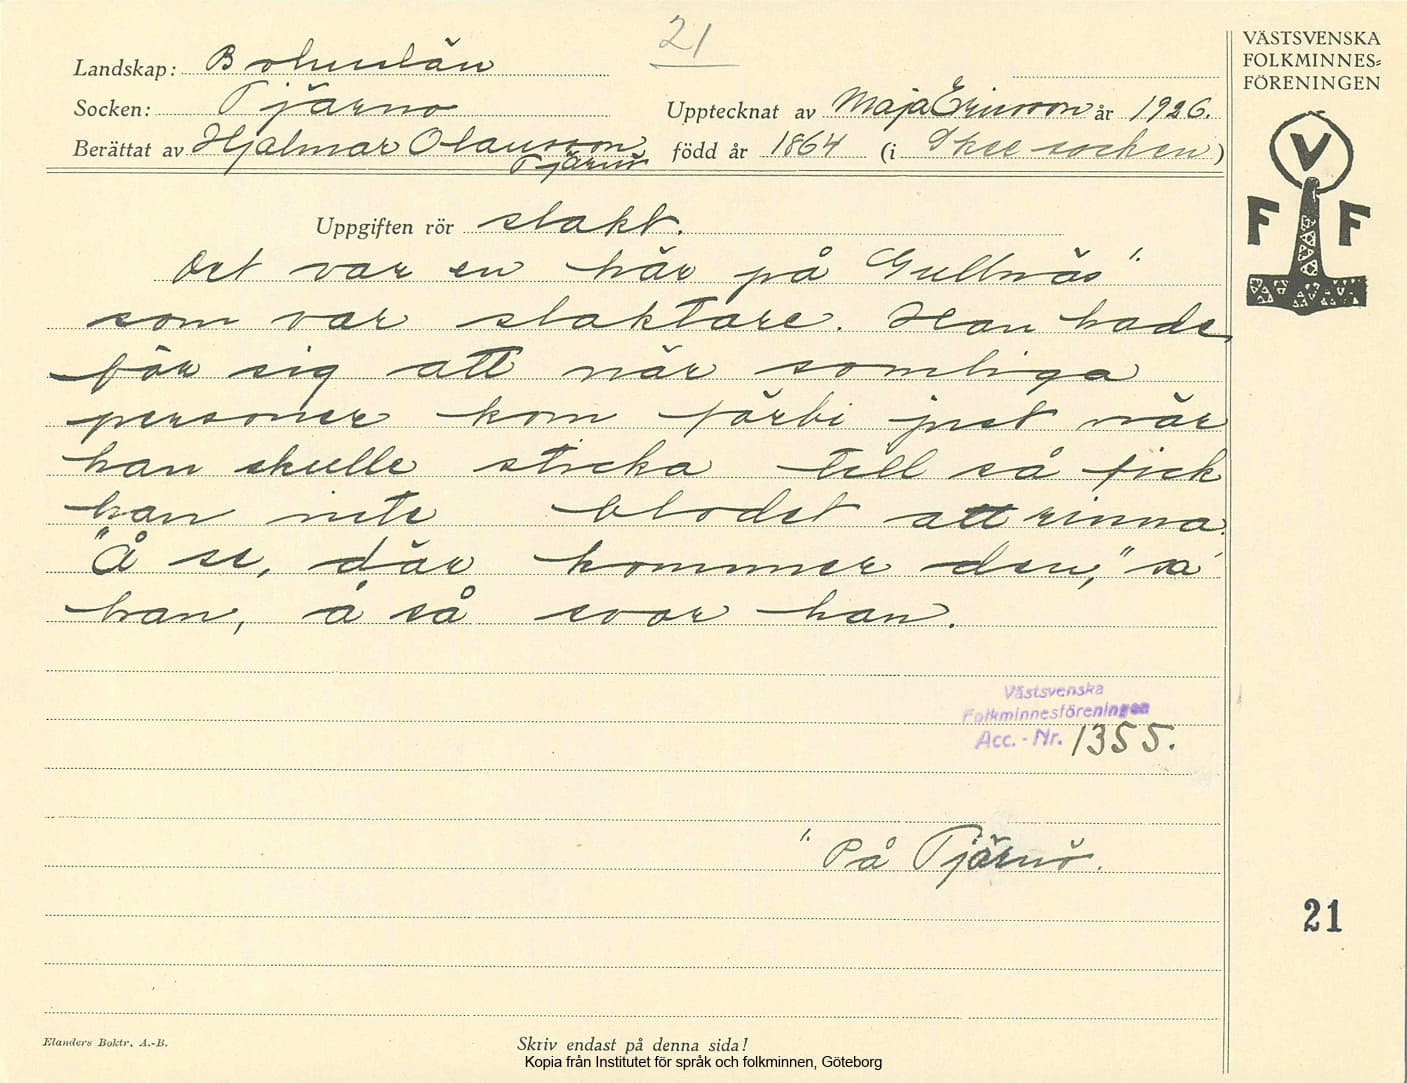 21
VÄSTSVENSKA
FOLKMINNES=
FÖRENINGEN
Landskap: Bohuslän
Socken: Tjärnö
Upptecknat av Maja Ericsson år 1926.
Berättat av Hjalmar Olausson, född år 1864 (i Skee socken)
Tjärnö
V
F F
Uppgiften rör slakt.
Det var en här på Gullnäs"
som var slaktare. Han hade
för sig att när somliga
personer kom förbi just när
han skulle sticka till så fick
han inte blodet att rinna.
"Å se, där kommer den," sa
han, å så svor han.
Västsvenska
Folkminnesföreningen
Acc. - Nr. 1355.
" På Tjärnö.
21
Elanders Boktr. A.-B.
Skriv endast på denna sida!
Kopia från Institutet för språk och folkminnen, Göteborg